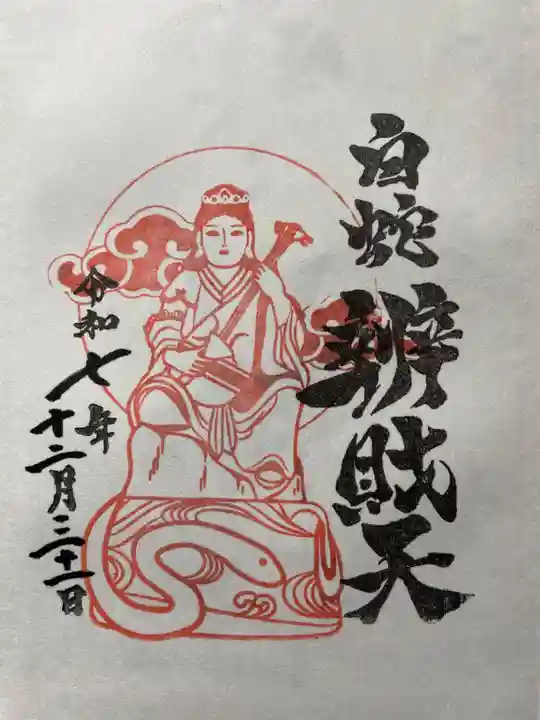 白蛇
辨財天
令和七年
十二月三十一日